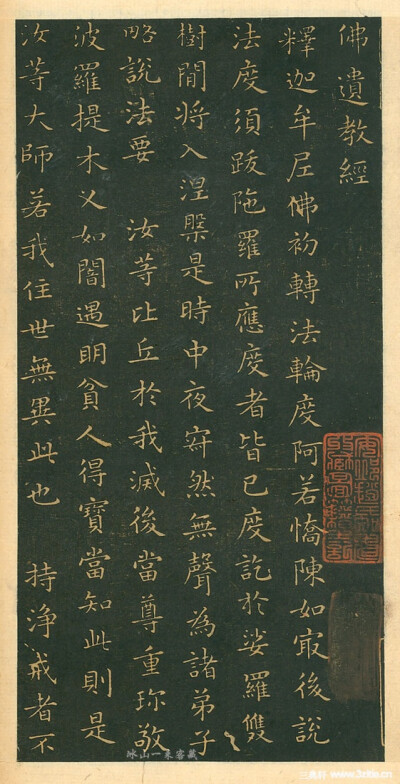 佛遺教經
釋迦牟尼佛初轉法輪度阿若憍陳如㝡後說
法度須跋陁羅所應度者皆已度訖於娑羅雙
樹間將入涅槃是時中夜寂然無聲為諸弟子
略說法要 汝等比丘於我滅後當尊重珍敬
波羅提木叉如闇遇明貧人得寶當知此則是
汝等大師若我住世無異此也 持淨戒者不
www.3zitie.cn